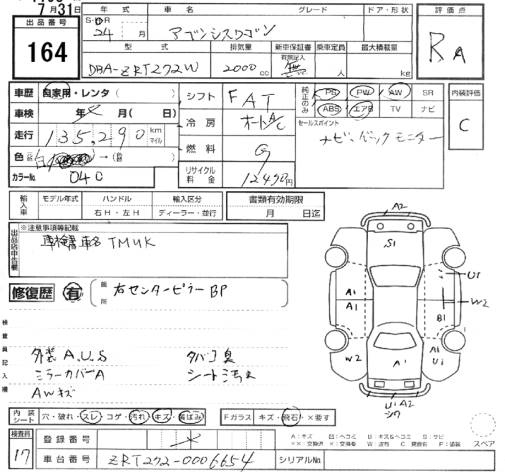 7月31日
出品番号
164
年式
車名
グレード
ドア・形状
評価点
S・H
24 月
アベンシスワゴン
RA
型式
排気量
新車保証書
有無記入
乗車定員
最大積載量
DBA-ZRT272W
2000 cc
無
人
kg
車歴
自家用・レンタ( )
シフト
FAT
純正のみ
PS
PW
AW
SR
ABS
エアB
TV
ナビ
内装評価
C
車検
年 月( 日)
冷房
オートA/C
セールスポイント
ナビ、バックモニター
走行
135,290 km マイル
色
燃料
G
カラーNo.
040
リサイクル料金
12490円
輸入車
モデル年式
ハンドル
右H・左H
輸入区分
ディーラー・並行
書類有効期限
月 日迄
出品店申告欄
※注意事項等記載
車検書車名TMUK
修復歴
有
箇所
右センターピラーBP
検査員記入欄
外装A.U.S
タバコ臭
ミラーカバーA
シート汚れ
AWキズ
A2
S1
U1
A1
A1
B1
W2
W2
A1
A1
U1
U1 A2
スペア
内装シート
穴・破れ・スレ・コゲ・汚れ・キズ・傷ばみ
Fガラス
キズ・飛石・×要す
A:キズ
U:ヘコミ
B:キズ&ヘコミ
S:サビ
××:交換済
×:要交換
W:波有
C:腐食
F:塗装
検査員
17
登録番号
車台番号
ZRT272-0006654
シリアルNo.